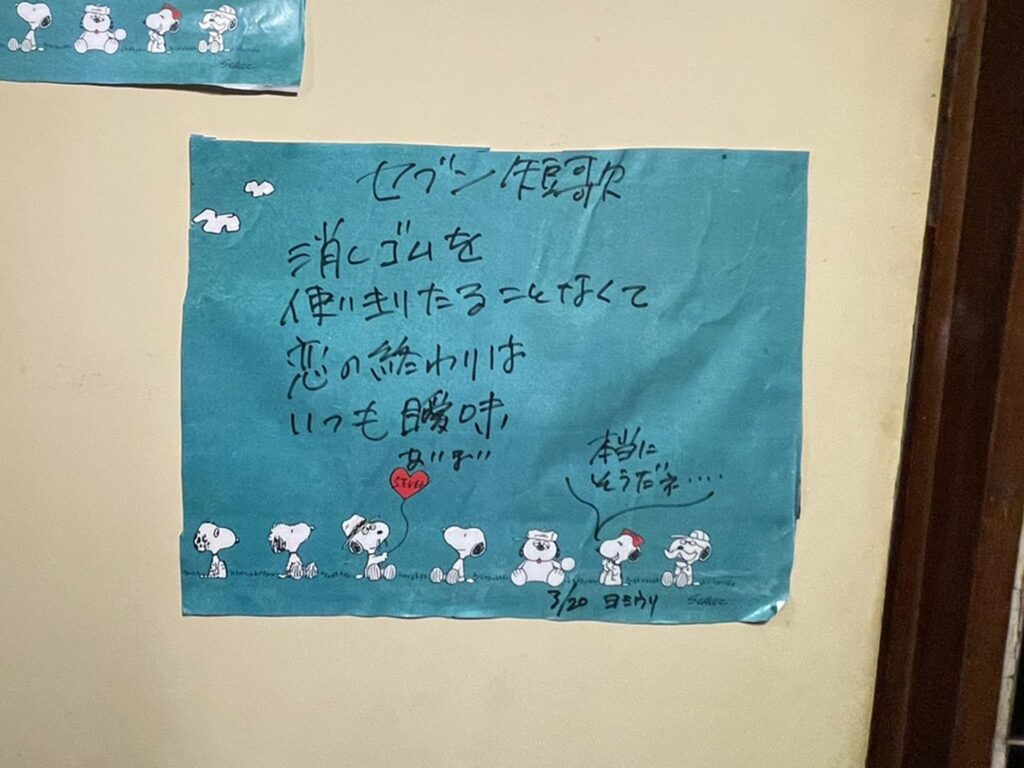 セブン短歌
消しゴムを
使いきりたることなくて
恋の終わりは
いつも曖昧
あいまい
本当に
そうだネ‥‥
SEVEN
3/20 ヨミウリ